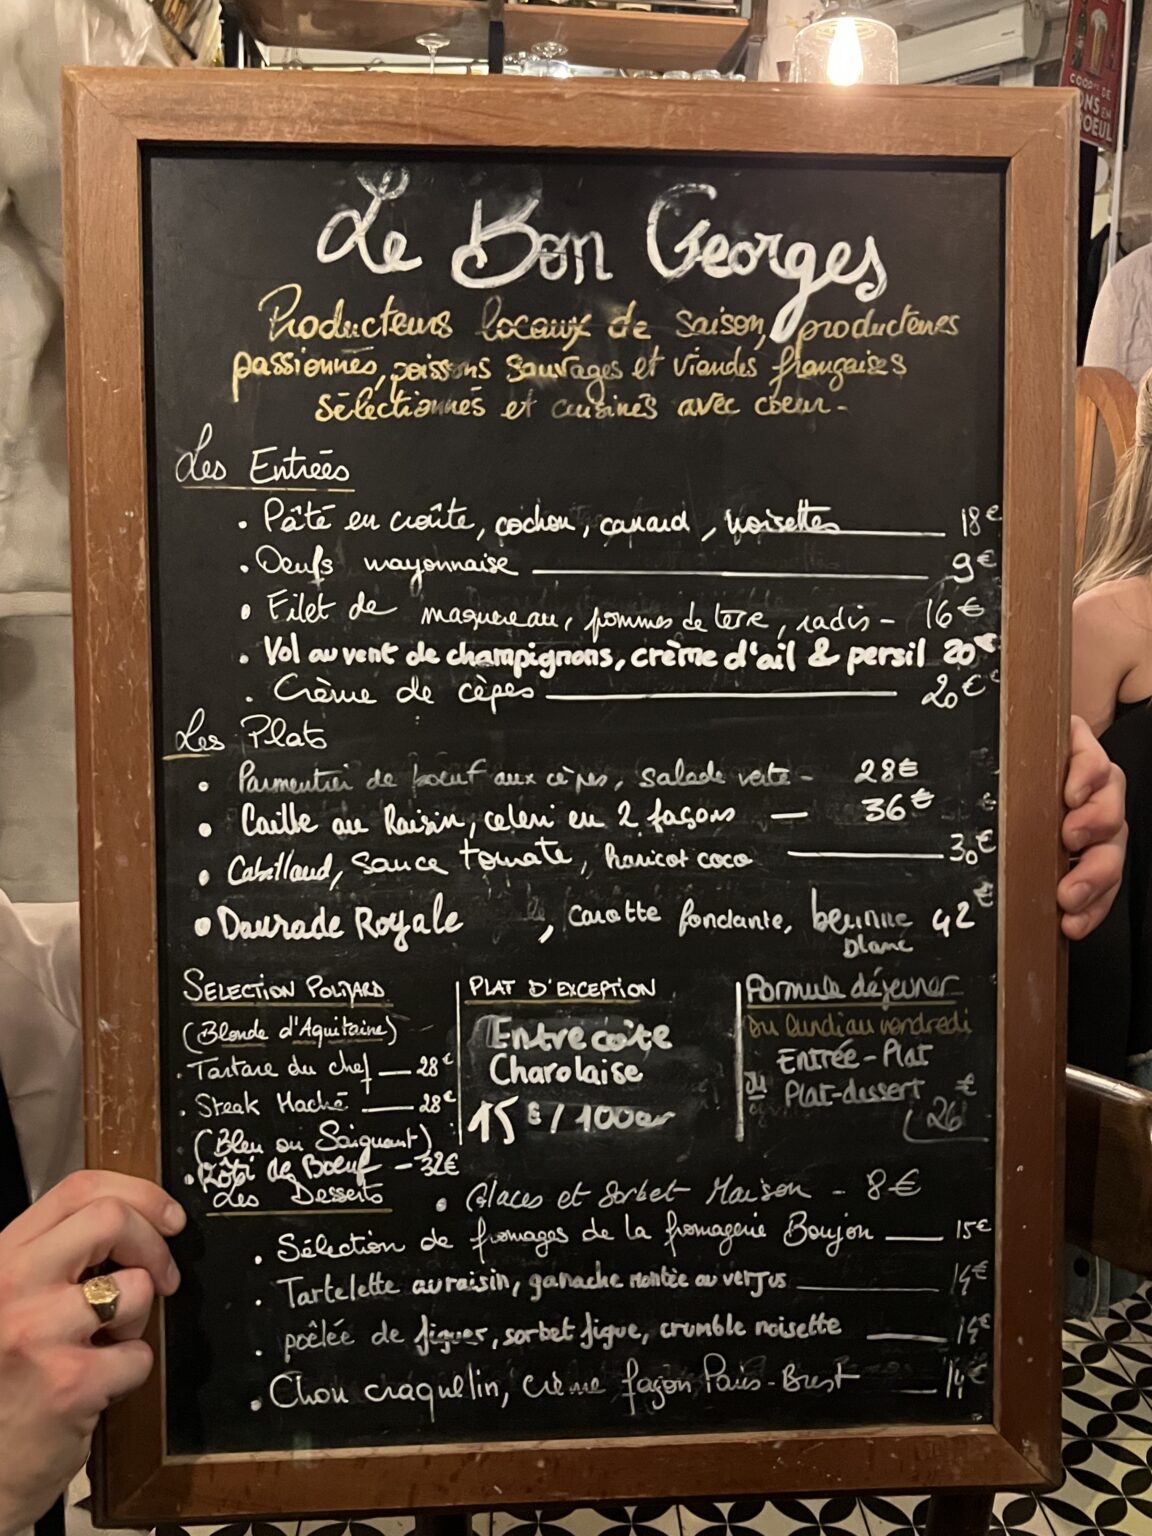 Le Bon Georges
Producteurs locaux de saison, producteurs
passionnés, poissons sauvages et viandes françaises
sélectionnés et cuisinés avec coeur-
Les Entrées
• Pâté en croûte, cochon, canard, noisettes 18€
• Oeufs mayonnaise 9€
• Filet de maquereau, pommes de terre, radis - 16€
• Vol au vent de champignons, crème d'ail & persil 20€
• Crème de cèpes 20€
Les Plats
• Parmentier de boeuf aux cèpes, salade verte - 28€
• Caille au Raisin, celeri en 2 façons — 36€
• Cabillaud, sauce tomate, haricot coco — 30€
• Daurade Royale, carotte fondante, beurre blanc 42€
SELECTION POLMARD
(Blonde d'Aquitaine)
• Tartare du chef — 28€
• Steak Haché — 28€
(Bleu ou Saignant)
• Rôti de Boeuf - 32€
PLAT D'EXCEPTION
Entrecôte
Charolaise
15€/100gr
Formule déjeuner
Du lundi au vendredi
Entrée-Plat
ou Plat-dessert
26€
Les Desserts
• Glaces et Sorbet Maison - 8€
• Sélection de fromages de la fromagerie Boujon — 15€
• Tartelette au raisin, ganache montée au verjus 14€
• poêlée de figues, sorbet figue, crumble noisette — 14€
• Chou craquelin, crème façon Paris-Brest — 14€